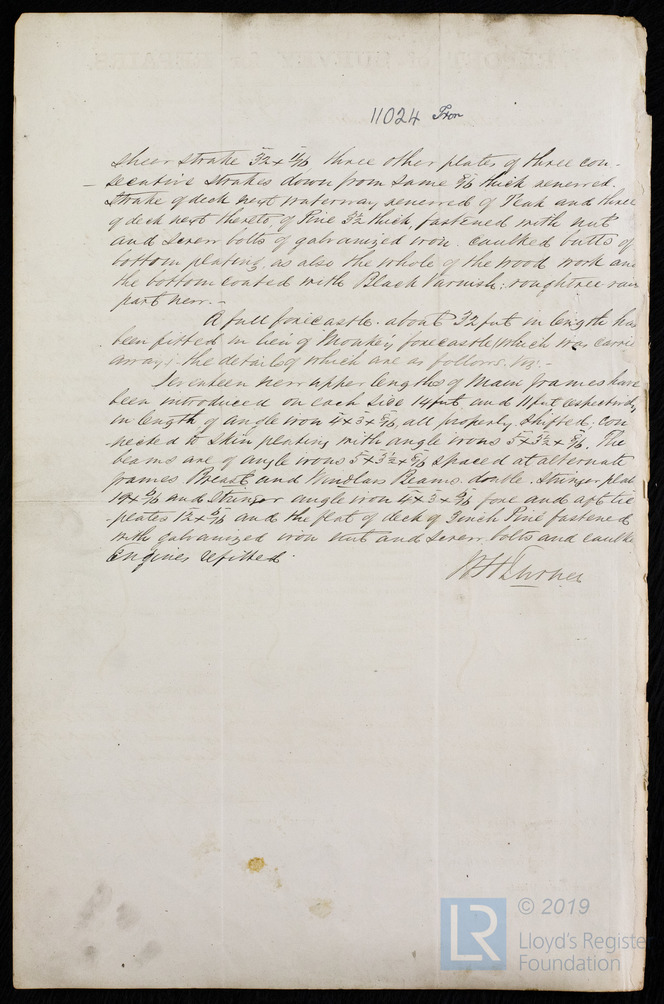 11024 Iron
sheer strake 32 x 11/16 three other plates of three con-
- secutive strakes down from same 9/16 thick renewed.
Strake of deck next waterway renewed of Teak and three
of deck next thereto, of Pine 3½ thick, fastened with nut
and screw bolts of galvanized iron. caulked butts of
bottom plating, as also the whole of the wood work and
the bottom coated with Black Varnish: roughtree rail
part new. -
A full forecastle about 32 feet in length has
been fitted in lieu of Monkey forecastle (which was carried
away): the details of which are as follows. Viz: -
Seventeen new upper lengths of Main frames have
been introduced on each side 14 feet and 11 feet respectively
in length of angle iron 4 x 3 x all properly shifted: con-
nected to skin plating with angle irons 3 x 3½ x The
beams are of angle irons 5 x 3½ x spaced at alternate
frames Breast and Windlass Beams double. Stringer plat
19 x and Stringer angle iron 4 x 3 x fore and aft tie
plates 12 x and the flat of deck of 3 inch Pine fastened
with galvanized iron nut and screw bolts and caulke
Engines refitted.
W H Turner
© 2019
LR
Lloyd's Register
Foundation